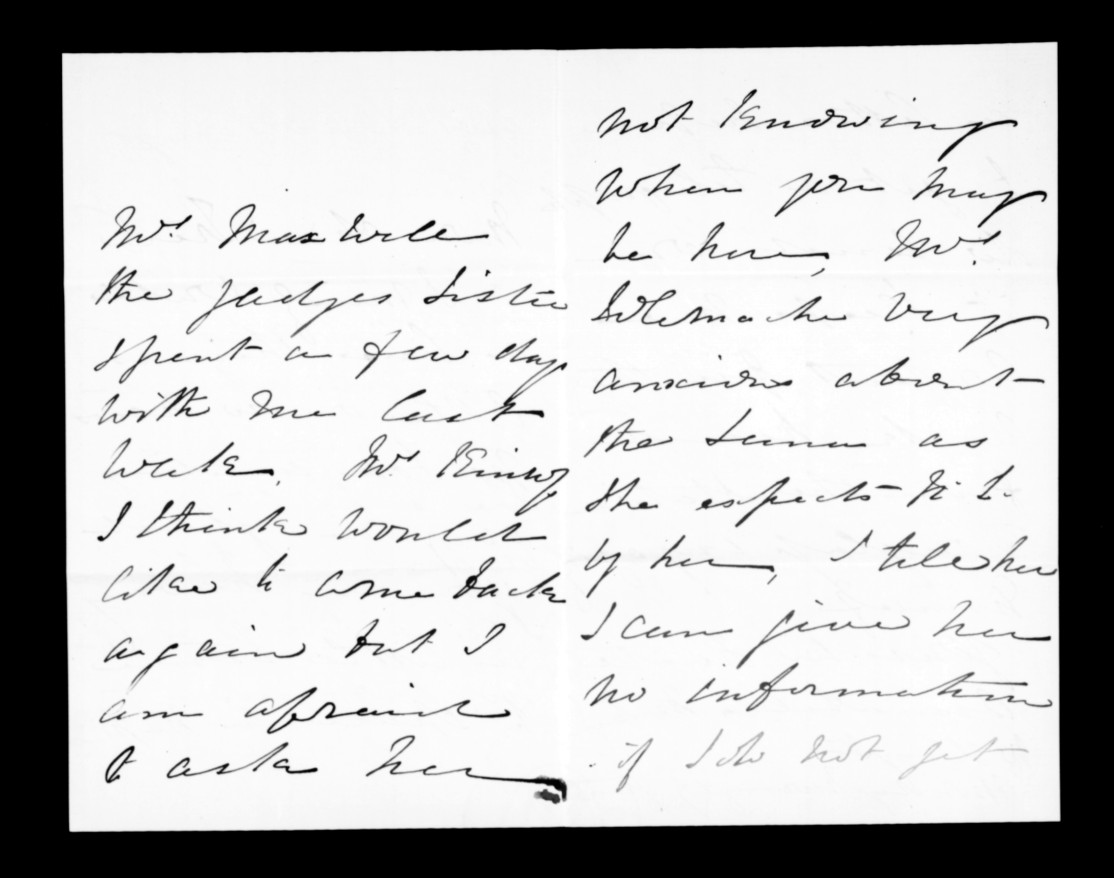 Mrs. Maxwell
the judges sister
spent a few days
with me last
week. Mrs King
I think would
like to come back
again but I
am afraid
to ask her
not knowing
when you may
be here, Mrs.
very
anxious about
the as
she expects to
by her, I tell her
I can give her
no information
if I do not get